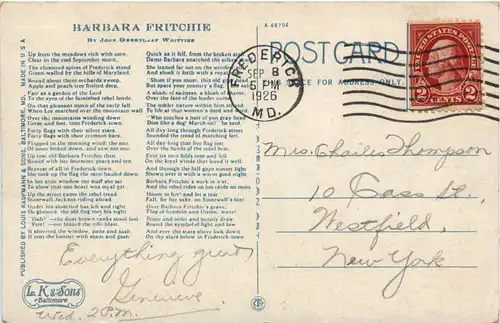 BARBARA FRITCHIE
By John Greenleaf Whittier
Up from the meadows rich with corn.
Clear in the cool September morn.
The clustered spires of Frederick stand
Green-walled by the hills of Maryland.
Round about them orchards sweep,
Apple and peach tree fruited deep.
Fair as a garden of the Lord
To the eyes of the famished rebel horde.
On that pleasant morn of the early fall
When Lee marched over the mountain wall
Over the mountains winding down
Horse and foot, into Frederick-town.
Forty flags with their silver stars.
Forty flags with their crimson bars.
Flapped in the morning wind; the sun
Of noon looked down, and saw not one.
Up rose old Barbara Frietchie then
Bowed with her fourscore years and ten
Bravest of all in Frederick town.
She took up the flag the men hauled down
In her attic window the staff she set
To show that one heart was loyal yet
Up the street came the rebel tread.
Stonewall Jackson riding ahead.
Under his slouched hat left and right
He glanced, the old flag met his sight
"Halt!" — the dust brown ranks stood fast
"Fire!" — out blazed the rifle-blast.
It shivered the window, pane and sash
It rent the banner with seam and gash
Quick as it fell, from the broken staff
Dame Barbara snatched the silken scarf
She leaned far out on the window sill
And shook it forth with a royal will
"Shoot if you must, this old gray head
But spare your country's flag," she said.
A shade of sadness, a blush of shame
Over the face of the leader came
The nobler nature within him stirred
To life at that woman's deed and word
"Who touches a hair of yon gray head
Dies like a dog! March on!" he said
All day long through Frederick street
Sounded the tread of marching feet
All day long that free flag tost
Over the heads of the rebel host.
Ever its torn folds rose and fell
On the loyal winds that loved it well
And through the hill gaps sunset light
Shone over it with a warm good night
Barbara Frietchie's work is o'er,
And the rebel rides on his raids no more
Honor to her! and let a tear
Fall, for her sake, on Stonewall's bier
Over Barbara Frietchie's grave,
Flag of freedom and Union, wave!
Peace and order and beauty draw
Round thy symbol of light and law
And ever the stars above look down
On thy stars below in Frederick town.
PUBLISHED BY LOUIS KAUFMANN & SONS, BALTIMORE, MD. MADE IN U S A
L.K & Sons
Baltimore
Everything great
Genevieve
Wed. 2 P.M.
A-46706
POSTCARD
CE FOR ADDRESS ONLY.
FREDERICK
SEP 8
5 PM
1926
MD.
UNITED STATES POSTAGE
2 CENTS 2
Mrs. Charles Thompson
10 Cass St.,
Westfield,
New York